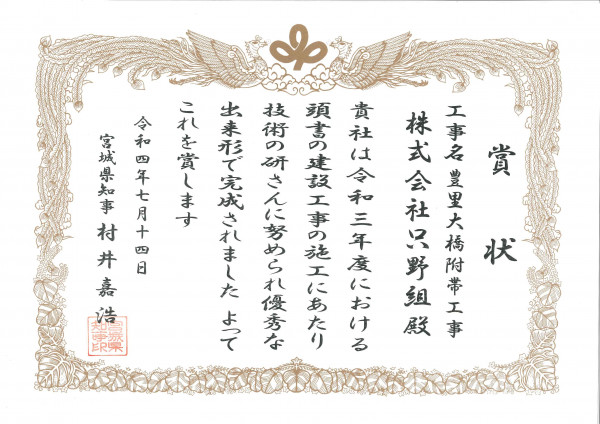 賞状
工事名 豊里大橋附帯工事
株式会社只野組 殿
貴社は令和三年度における
頭書の建設工事の施工にあたり
技術の研さんに努められ優秀な
出来形で完成されました よって
これを賞します
令和四年七月十四日
宮城県知事 村井嘉浩
宮城県知事印